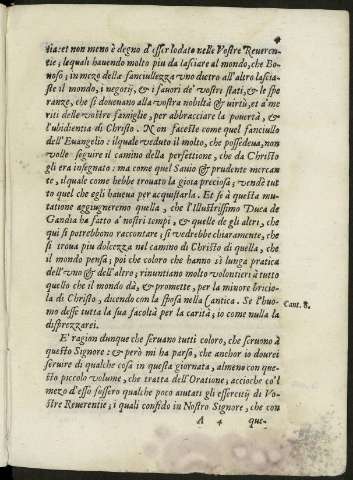 tia: et non meno è degno d'esser lodato nelle Vostre Reueren-
tie; lequali hauendo molto piu da lasciare al mondo, che Bo-
noso; in mezo della fanciullezza vno dietro all'altro lascia-
ste il mondo, i negotij, & i fauori de' vostri stati, & le spe
ranze, che si doueuano alla vostra nobiltà & uirtù, et a' me
riti delle vostre famiglie, per abbracciare la pouertà, &
l'ubidientia di Christo. Non faceste come quel fanciullo
dell'Euangelio: ilquale veduto il molto, che possedeua, non
volle seguire il camino della perfettione, che da Christo
gli era insegnato: ma come quel Sauio & prudente mercan
te, ilquale come hebbe trouato la gioia preciosa; vendè tut
to quel che egli haueua per acquistarla. Et se à questa mu
tatione aggiugneremo quella, che l'Illustrissimo Duca de
Gandia ha fatto a' nostri tempi, & quelle de gli altri, che
qui si potrebbono raccontare; si vedrebbe chiaramente, che
si troua piu dolcezza nel camino di Christo di quella, che
il mondo pensa; poi che coloro che hanno sì lunga pratica
dell'vno & dell'altro; rinuntiano molto volontieri à tutto
quello che il mondo dà, & promette, per la minore bricio-
la di Christo, dicendo con la sposa nella Cantica. Se l'huo-
mo desse tutta la sua facoltà per la carità; io come nulla la
disprezzarei.
Cant. 8.
E' ragion dunque che seruano tutti coloro, che seruono à
questo Signore: & però mi ha parso, che anchor io dourei
seruire di qualche cosa in questa giornata, almeno con que-
sto piccolo volume, che tratta dell'Oratione; accioche co'l
mezo d'esso fossero qualche poco aiutati gli essercitij di Vo-
stre Reuerentie; i quali confido in Nostro Signore, che con
A 4 que-